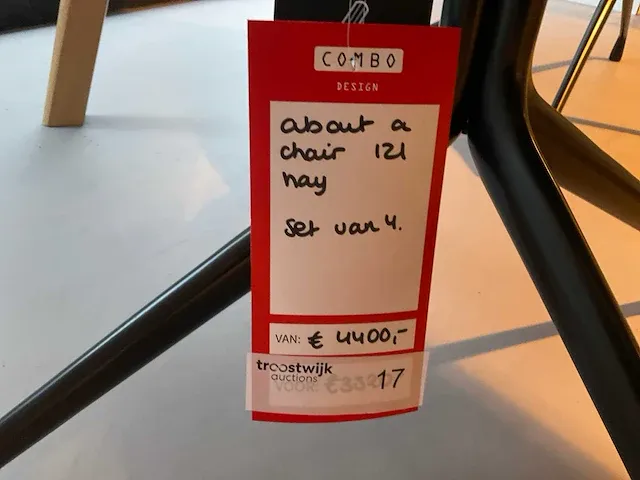 COMBO
DESIGN
about a
chair 121
hay
set van 4.
VAN: € 4400,-
troostwijk
auctions
17
VOOR: